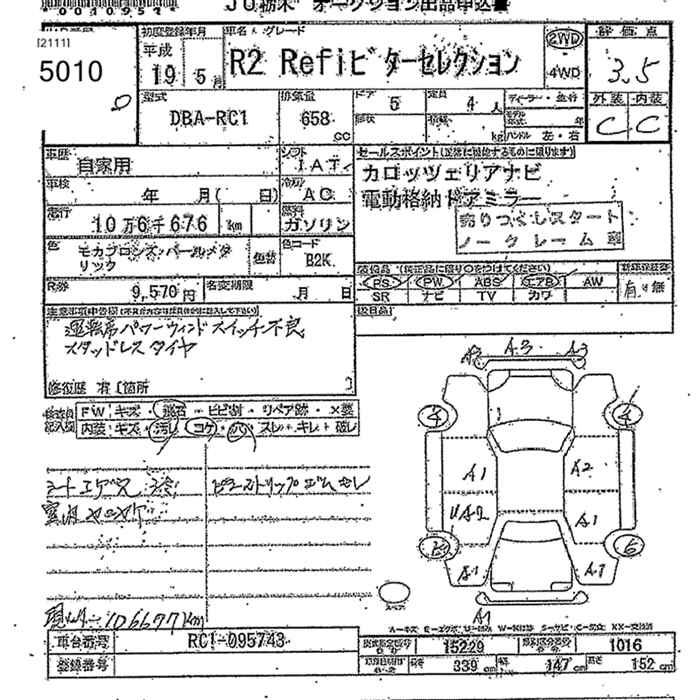 JU栃木 オークション出品申込書
5010
初度登録年月
平成
19 5月
車名・グレード
R2 Refiビターセレクション
2WD
4WD
評価点
3.5
型式
DBA-RC1
排気量
658
cc
ドア 5
定員 4 人
ハンドル 左・右
外装 内装
C C
車歴
自家用
シフト
IAT
セールスポイント
カロッツェリアナビ
電動格納ドアミラー
売りつよしスタート
ノークレーム車
車検
年 月( 日)
冷房
AC
走行
10万6千676 km
燃料
ガソリン
色
モカブロンズ・パールメタリック
色替
色コード
B2K
R券
9,570円
名変期限
月 日
PS PW ABS エアB AW
SR ナビ TV カワ
有・無
運転席パワーウィンドスイッチ不良
スタッドレスタイヤ
修復歴 有 [箇所 ]
FW キズ・飛石・ヒビ割・リペア跡・X要
内装 キズ・汚レ・コゲ・穴・スレ・キレ・破レ
A2 A3 A3
4 4
A1 A2
UA2 A1
A1 A1
A1
スペア
106677km
車台番号
RC1-095743
登録番号
15229
1016
長さ 339 cm 幅 147 cm 高さ 152 cm